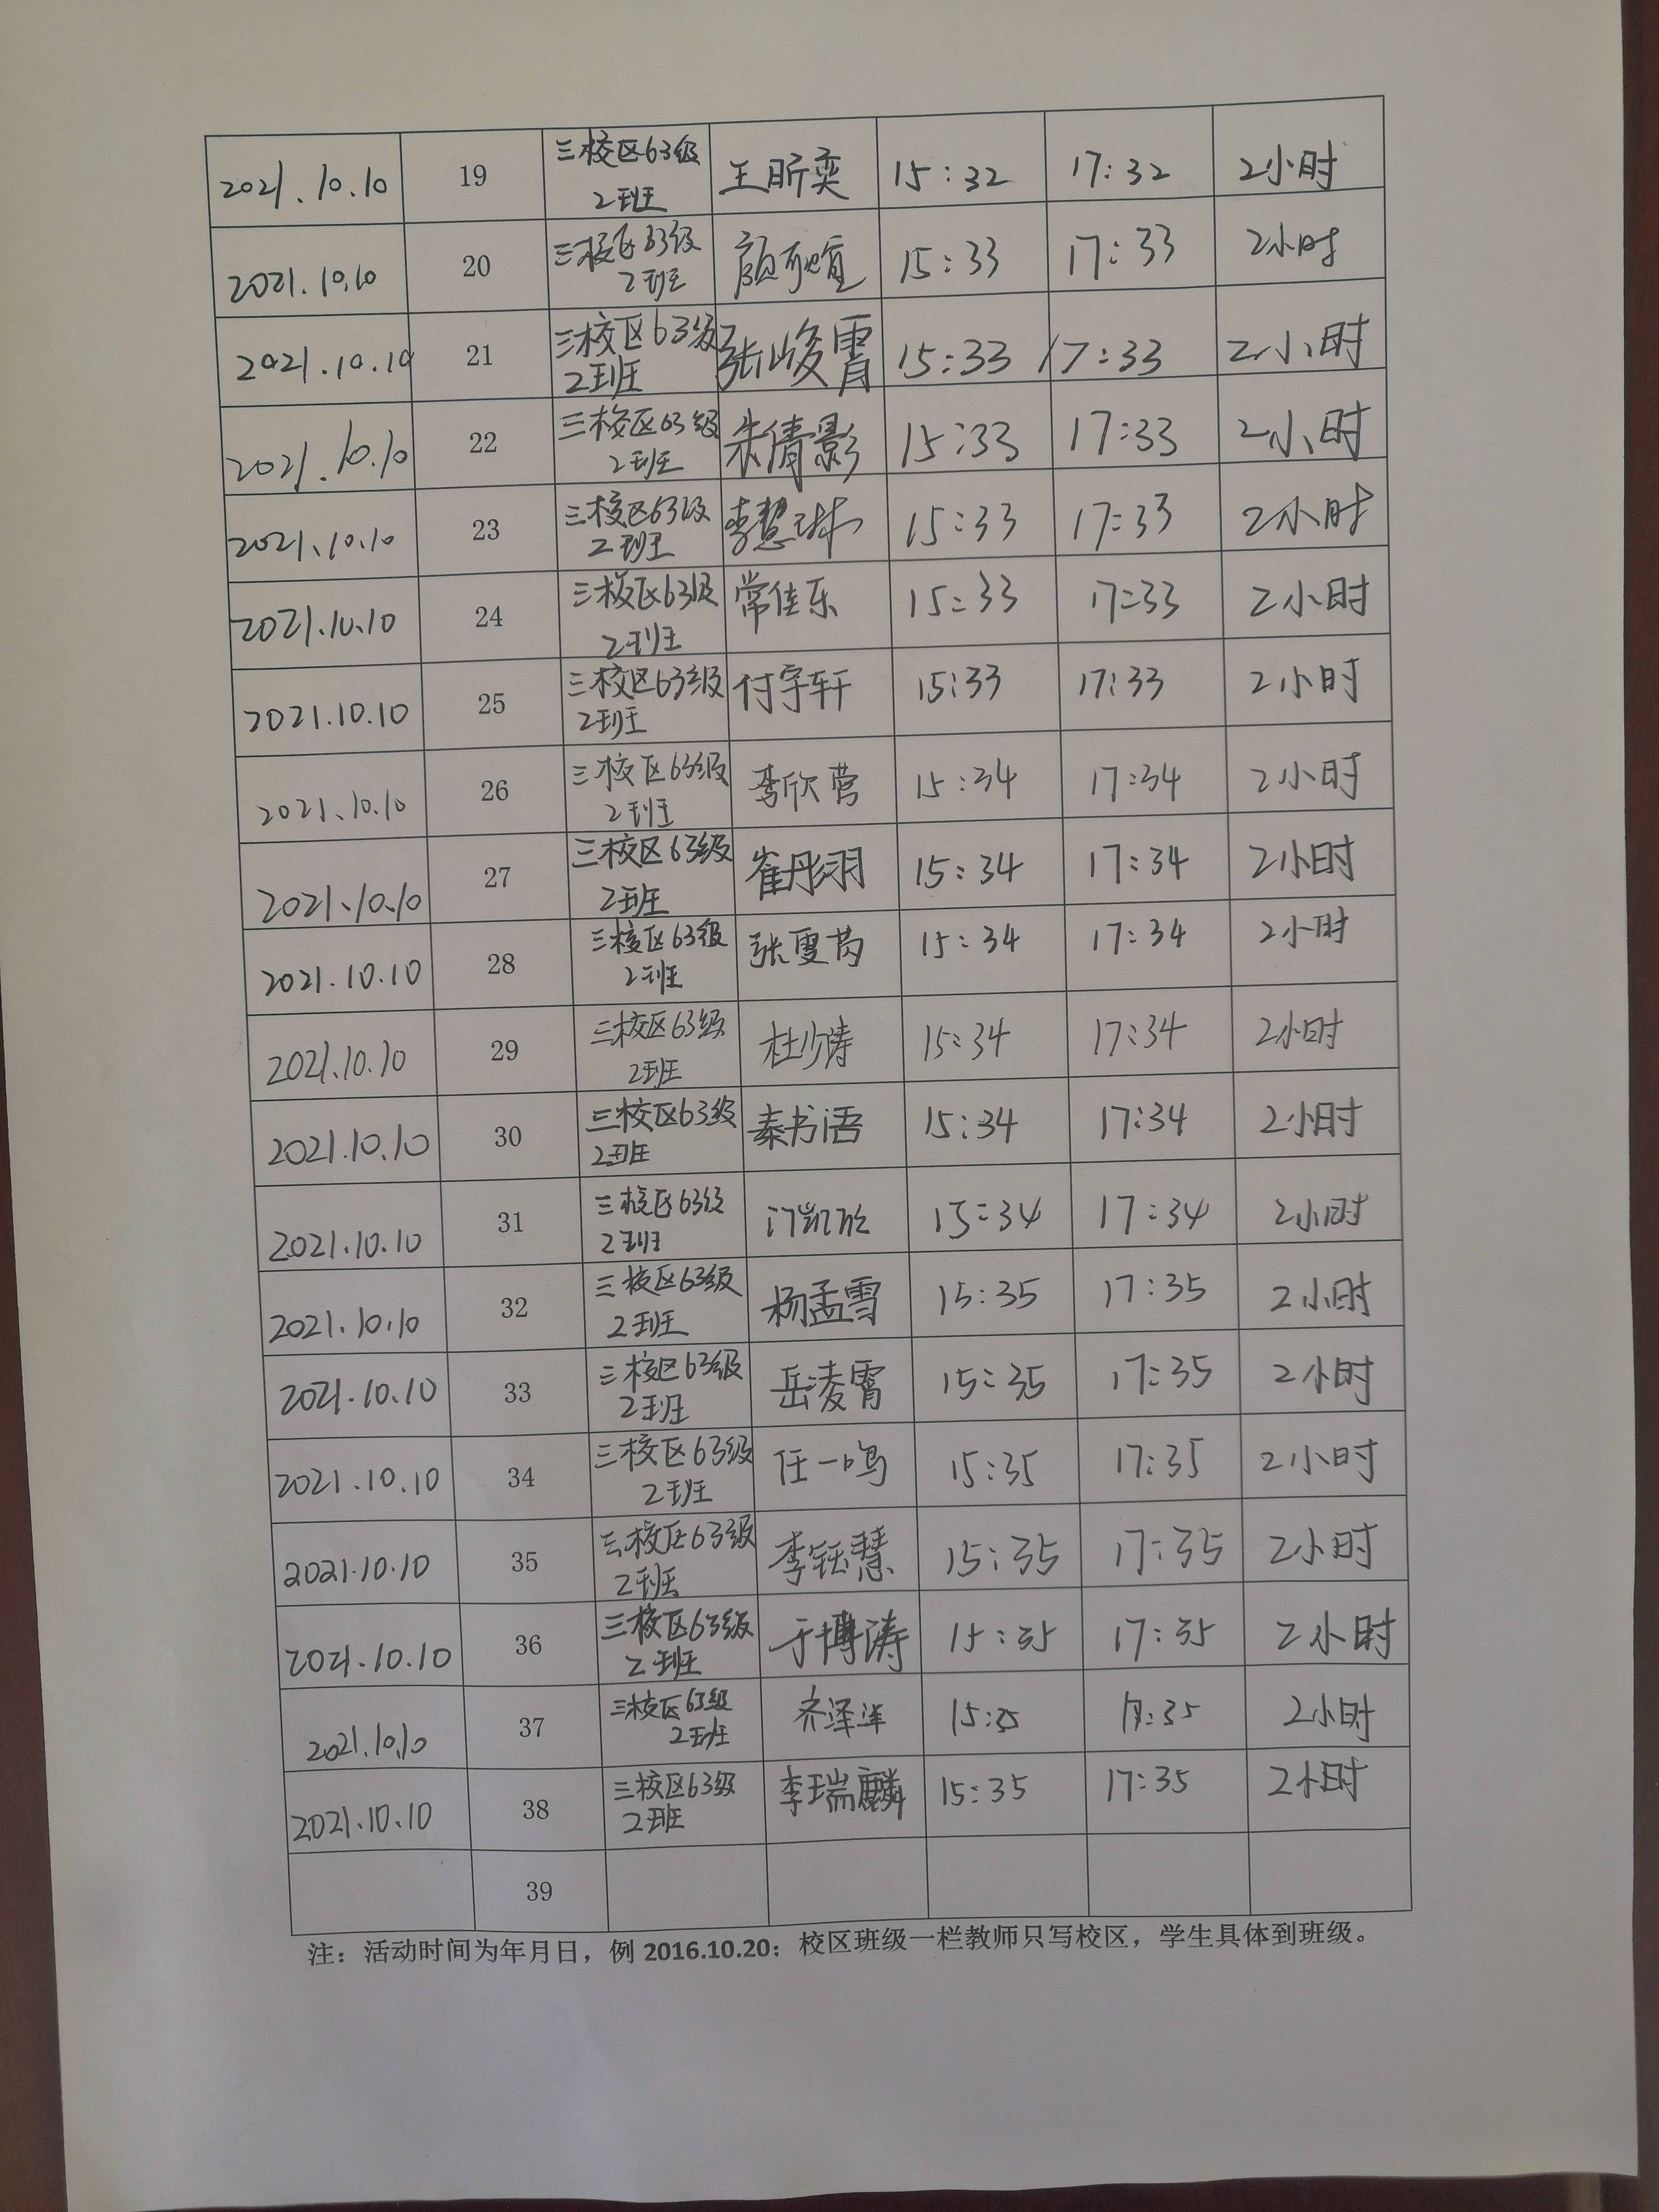 2021.10.10 19 三校区63级 2班 王昕奕 15:32 17:32 2小时
2021.10.10 20 三校区63级 2班 15:33 17:33 2小时
2021.10.10 21 三校区63级 2班 张峻霄 15:33 17:33 2小时
2021.10.10 22 三校区63级 2班 朱倩影 15:33 17:33 2小时
2021.10.10 23 三校区63级 2班 李慧琳 15:33 17:33 2小时
2021.10.10 24 三校区63级 2班 常佳乐 15:33 17:33 2小时
2021.10.10 25 三校区63级 2班 付宇轩 15:33 17:33 2小时
2021.10.10 26 三校区63级 2班 李欣莹 15:34 17:34 2小时
2021.10.10 27 三校区63级 2班 崔丹羽 15:34 17:34 2小时
2021.10.10 28 三校区63级 2班 15:34 17:34 2小时
2021.10.10 29 三校区63级 2班 杜少涛 15:34 17:34 2小时
2021.10.10 30 三校区63级 2班 秦书语 15:34 17:34 2小时
2021.10.10 31 三校区63级 2班 15:34 17:34 2小时
2021.10.10 32 三校区63级 2班 杨孟雪 15:35 17:35 2小时
2021.10.10 33 三校区63级 2班 岳凌霄 15:35 17:35 2小时
2021.10.10 34 三校区63级 2班 任一鸣 15:35 17:35 2小时
2021.10.10 35 三校区63级 2班 李钰慧 15:35 17:35 2小时
2021.10.10 36 三校区63级 2班 于博涛 15:35 17:35 2小时
2021.10.10 37 三校区63级 2班 齐泽洋 15:35 17:35 2小时
2021.10.10 38 三校区63级 2班 李瑞麟 15:35 17:35 2小时
39
注：活动时间为年月日，例 2016.10.20；校区班级一栏教师只写校区，学生具体到班级。